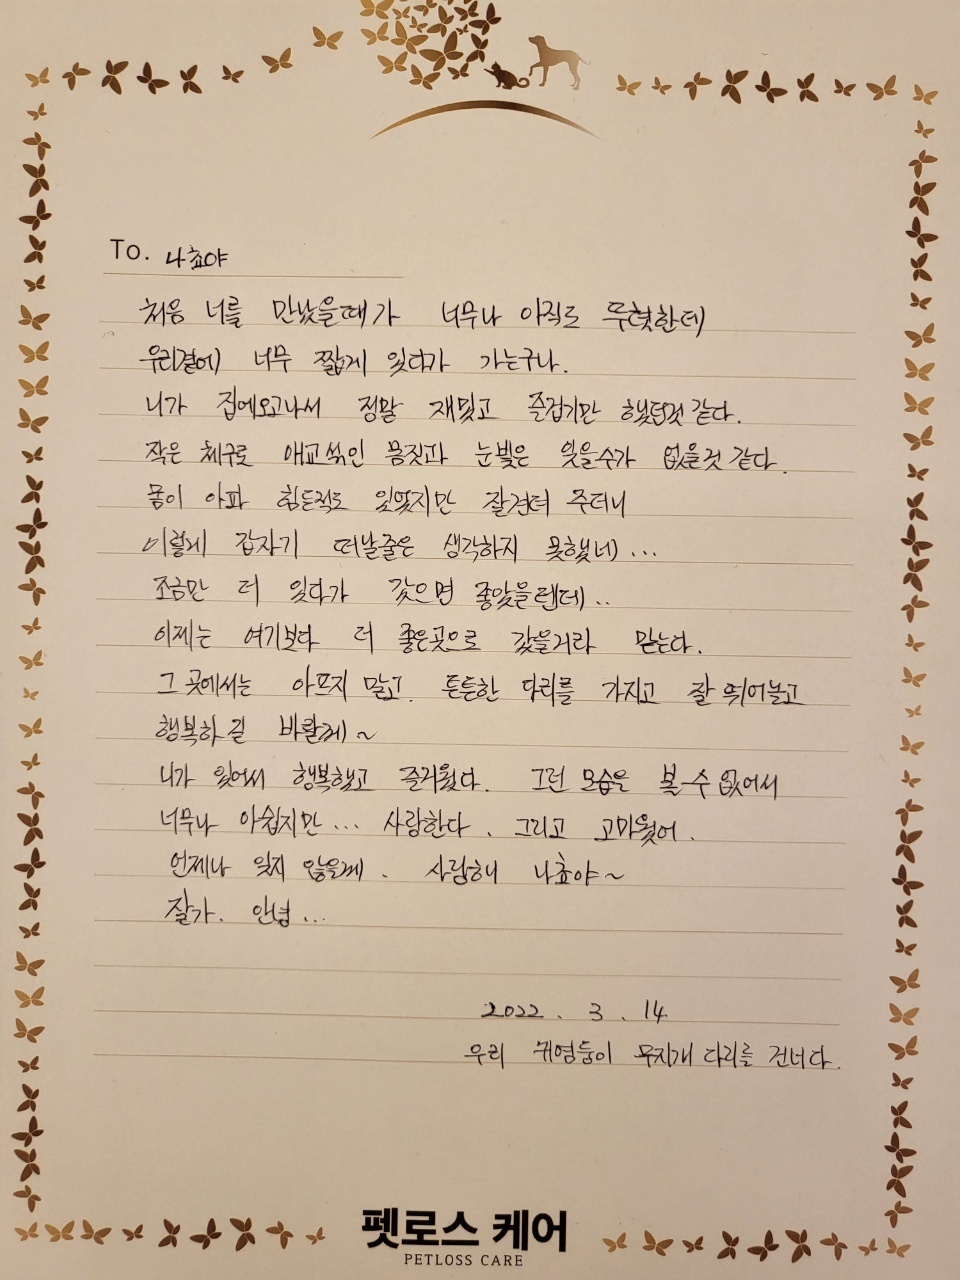 To. 나쵸야
처음 너를 만났을때가 너무나 아직도 뚜렷한데
우리곁에 너무 짧게 있다가 가는구나.
니가 집에오고나서 정말 재밌고 즐겁기만 했던것 같다.
작은 체구로 애교섞인 몸짓과 눈빛은 잊을수가 없을것 같다.
몸이 아파 힘든적도 있었지만 잘견뎌 주더니
이렇게 갑자기 떠날줄은 생각하지 못했네...
조금만 더 있다가 갔으면 좋았을텐데..
이제는 여기보다 더 좋은곳으로 갔을거라 믿는다.
그곳에서는 아프지 말고. 튼튼한 다리를 가지고 잘 뛰어놀고
행복하길 바랄께~
니가 있어서 행복했고 즐거웠다. 그런 모습을 볼수 없어서
너무나 아쉽지만... 사랑한다. 그리고 고마웠어.
언제나 잊지 않을께. 사랑해 나쵸야~
잘가. 안녕...
2022. 3. 14
우리 귀염둥이 무지개 다리를 건너다.
펫로스 케어
PETLOSS CARE